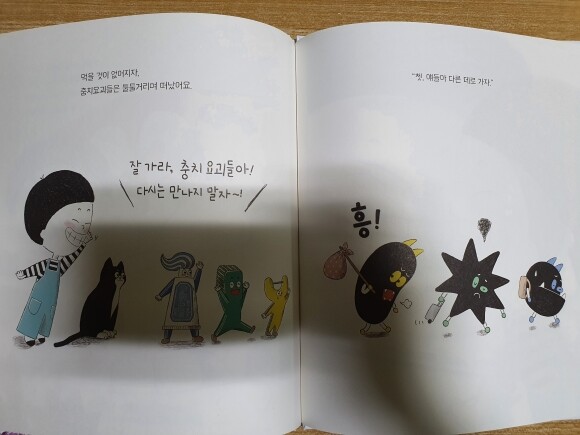 먹을 것이 없어지자,
충치요괴들은 툴툴거리며 떠났어요.
잘 가라, 충치 요괴들아!
다시는 만나지 말자~!
"쳇, 얘들아 다른 데로 가자."
흥!